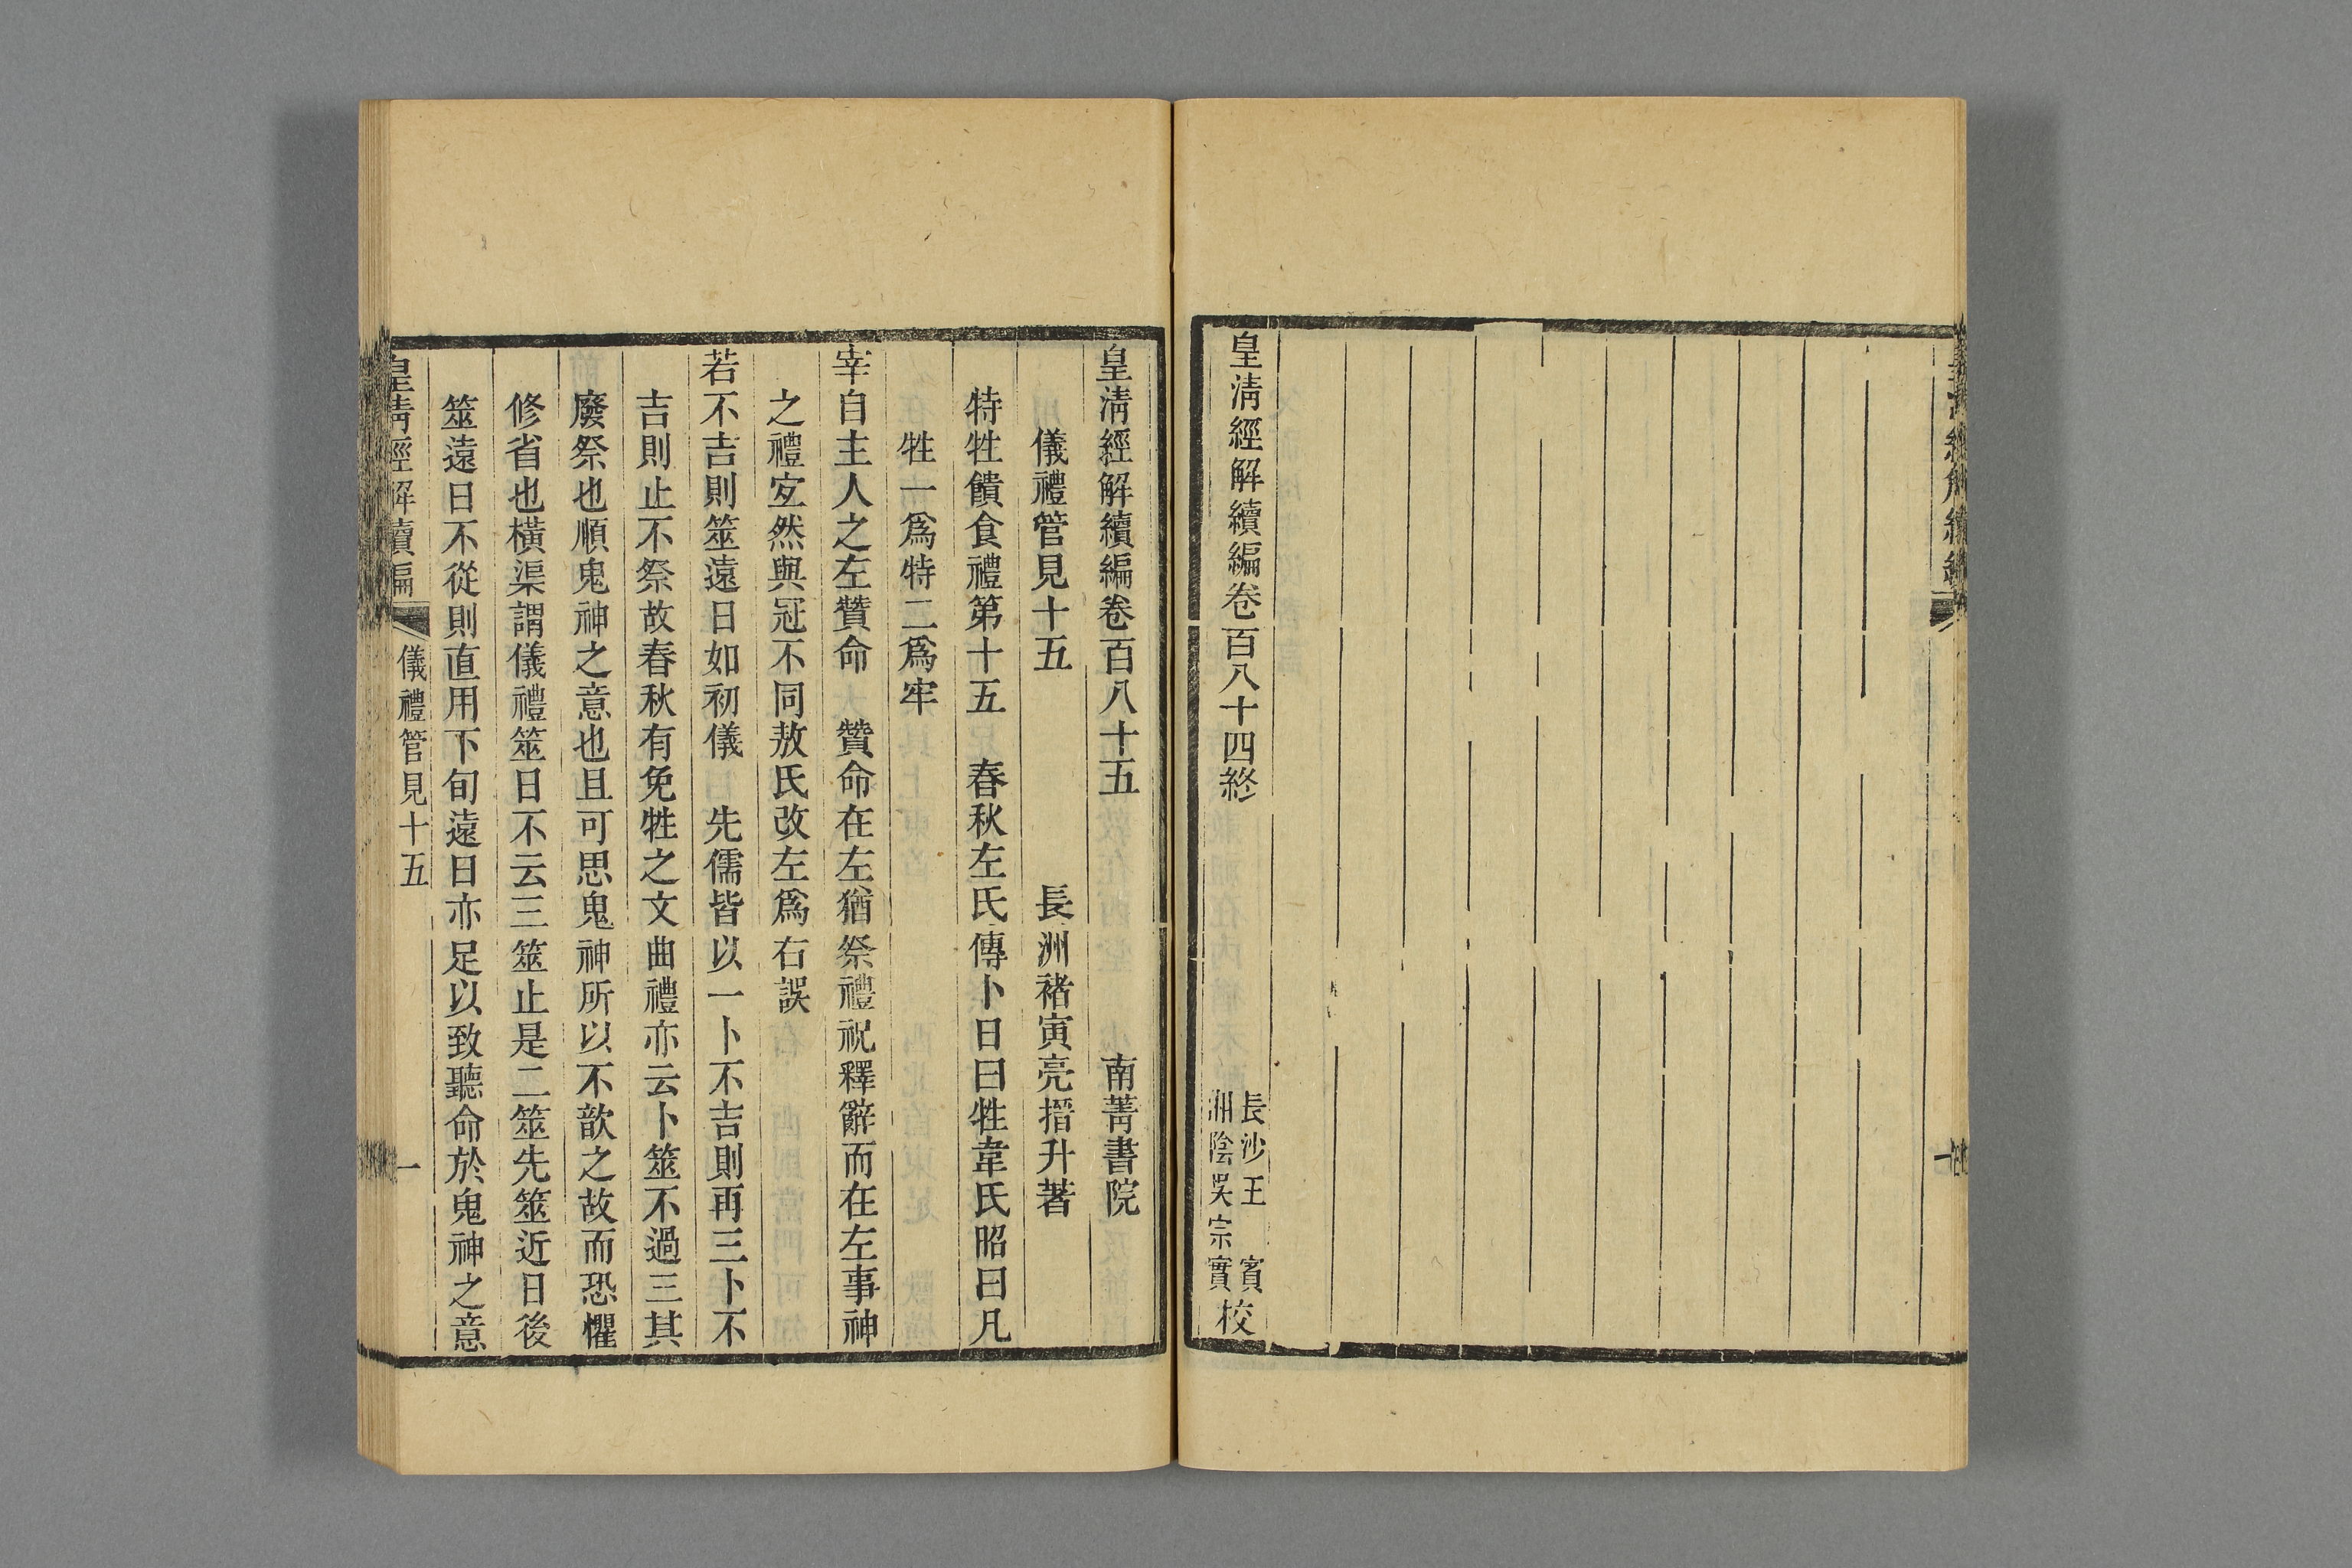 皇清經解續編卷百八十四終
長沙王　賓
湘陰吳宗實
校
皇清經解續編卷百八十五
南菁書院
儀禮管見十五
長洲褚寅亮搢升著
特牲饋食禮第十五　春秋左氏傳卜日曰牲韋氏昭曰凡
牲一爲特二爲牢
宰自主人之左贊命　贊命在左猶祭禮祝釋辭而在左事神
之禮宐然與冠不同敖氏改左爲右誤
若不吉則筮遠日如初儀　先儒皆以一卜不吉則再三卜不
吉則止不祭故春秋有免牲之文曲禮亦云卜筮不過三其
廢祭也順鬼神之意也且可思鬼神所以不歆之故而恐懼
修省也橫渠謂儀禮筮日不云三筮止是二筮先筮近日後
筮遠日不從則直用下旬遠日亦足以致聽命於鬼神之意
皇清經解續編
儀禮管見十五
一